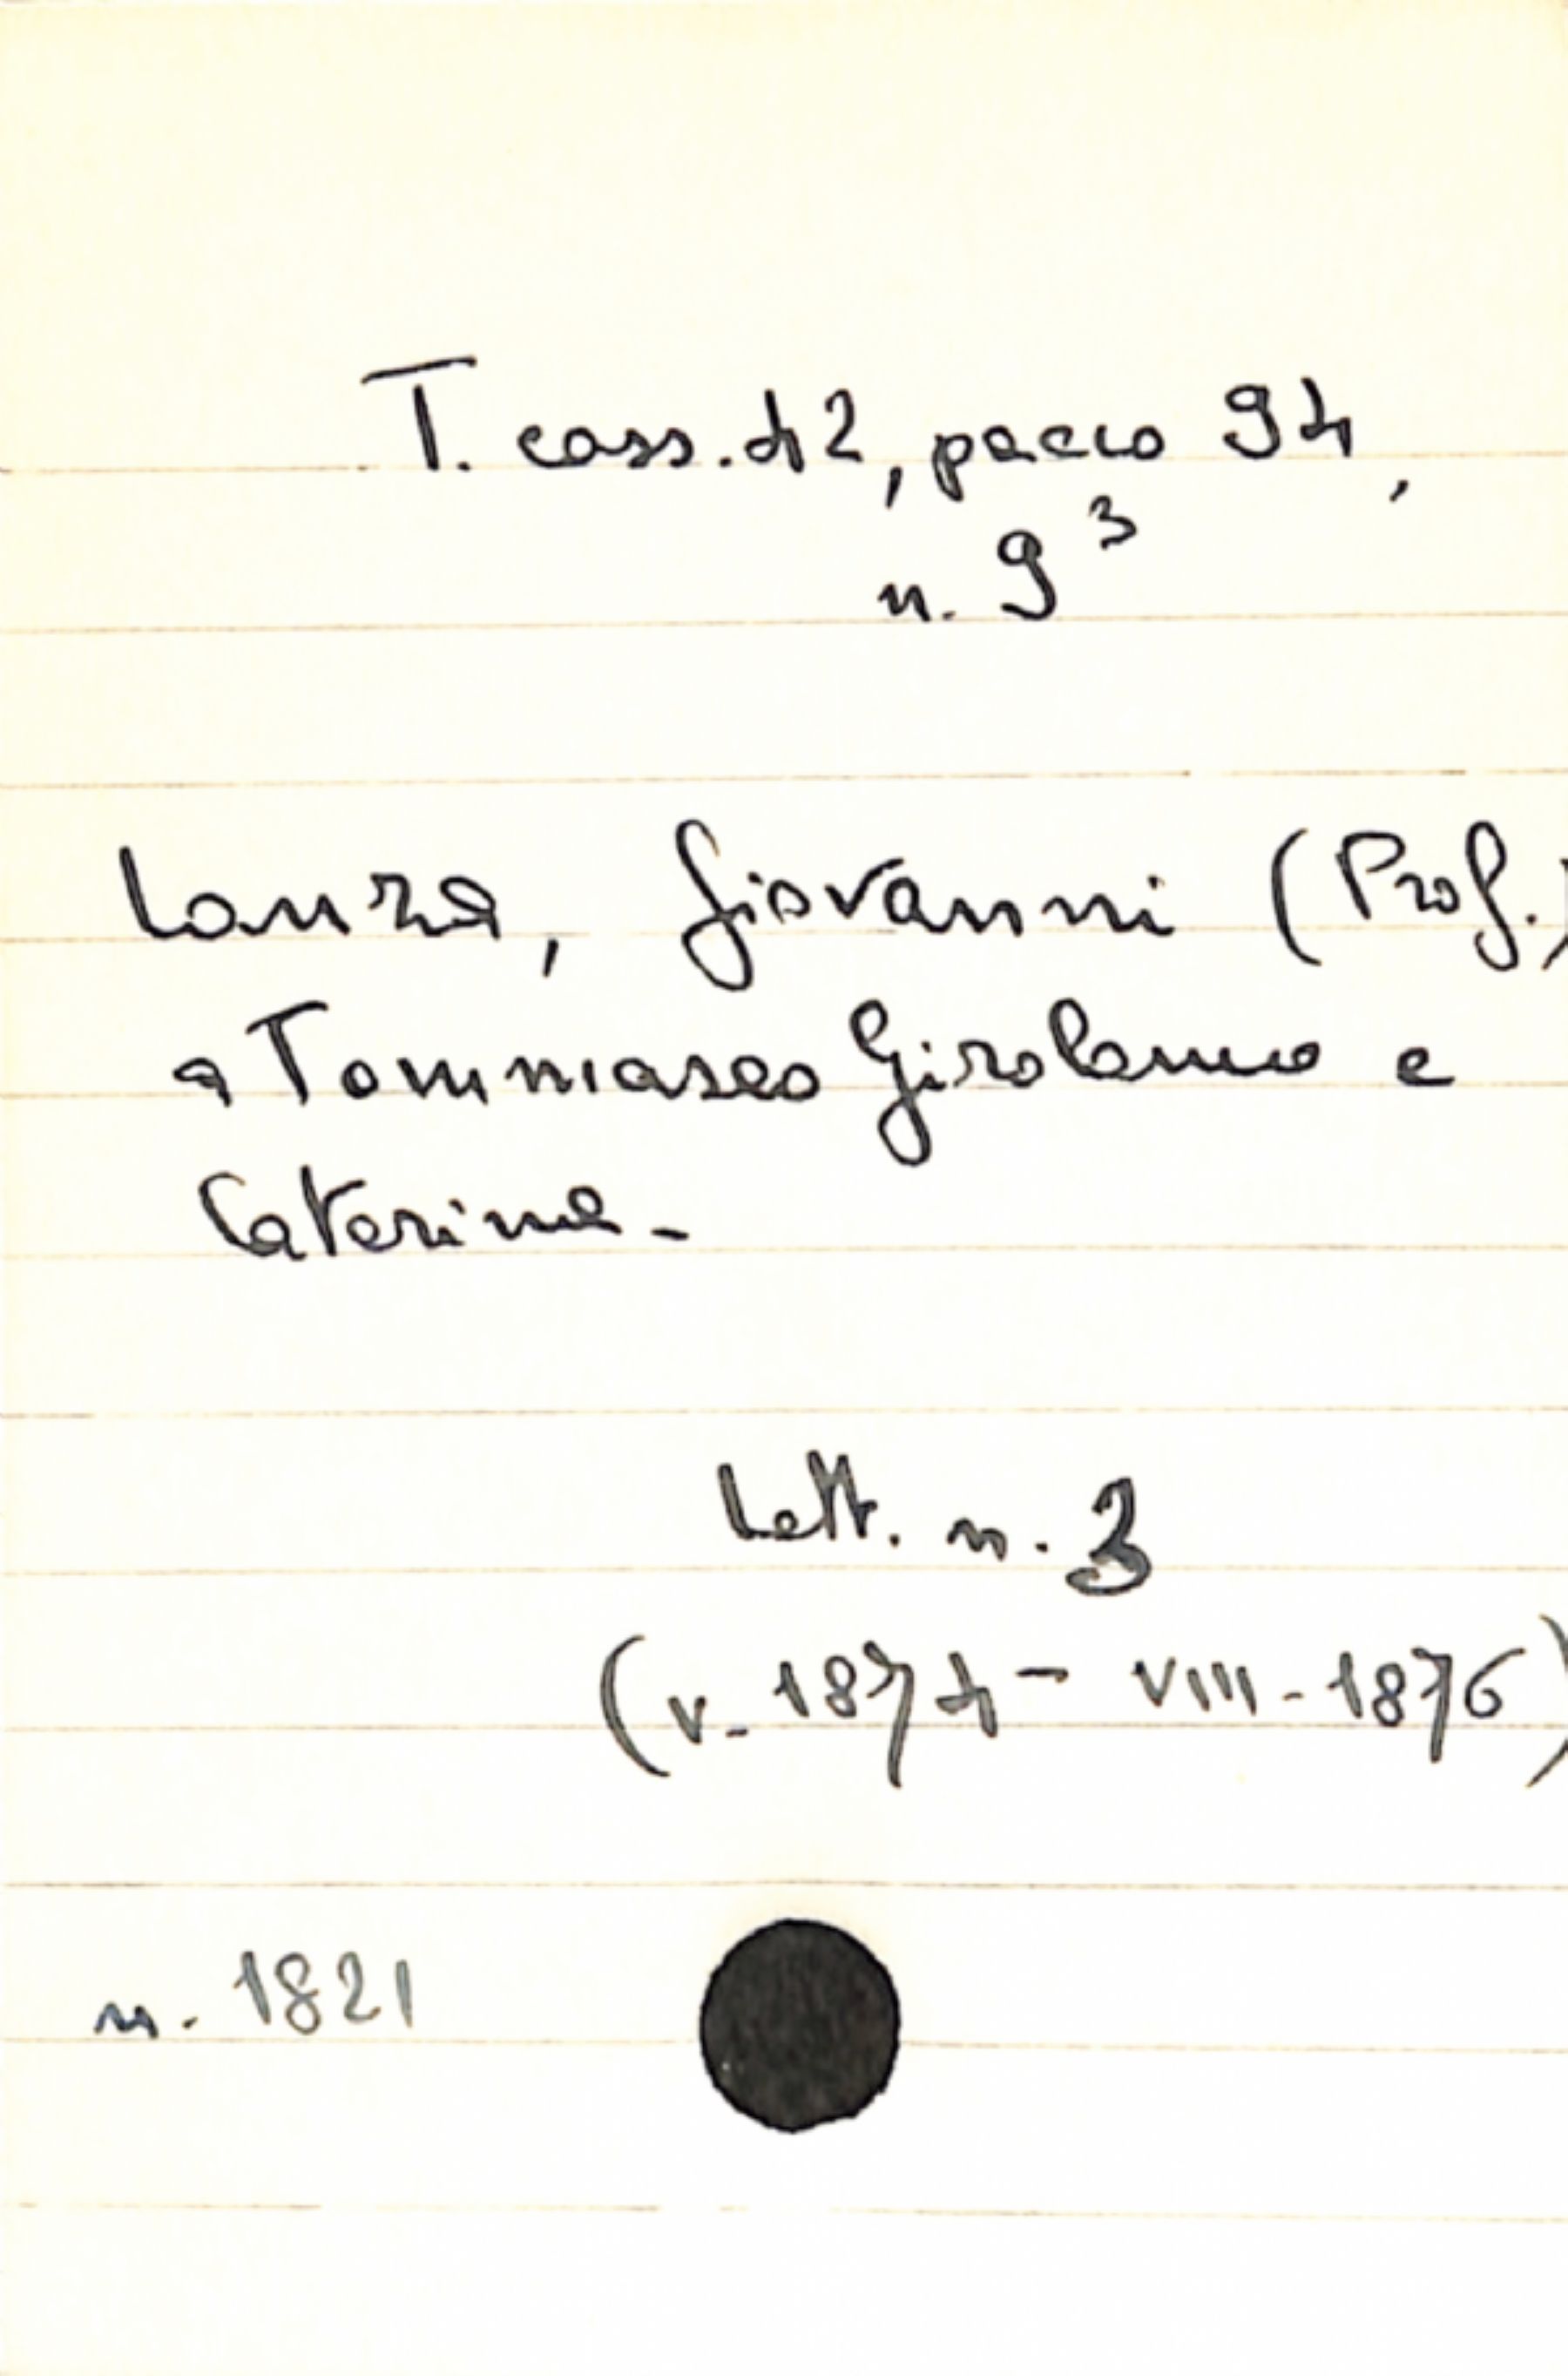 T. cass. 42, pacco 94,
n. 9³
Lanza, Giovanni (Prof.)
a Tommaseo Girolamo e
Caterina -
Lett. n. 3
(V- 1874 - VIII - 1876)
n. 1821